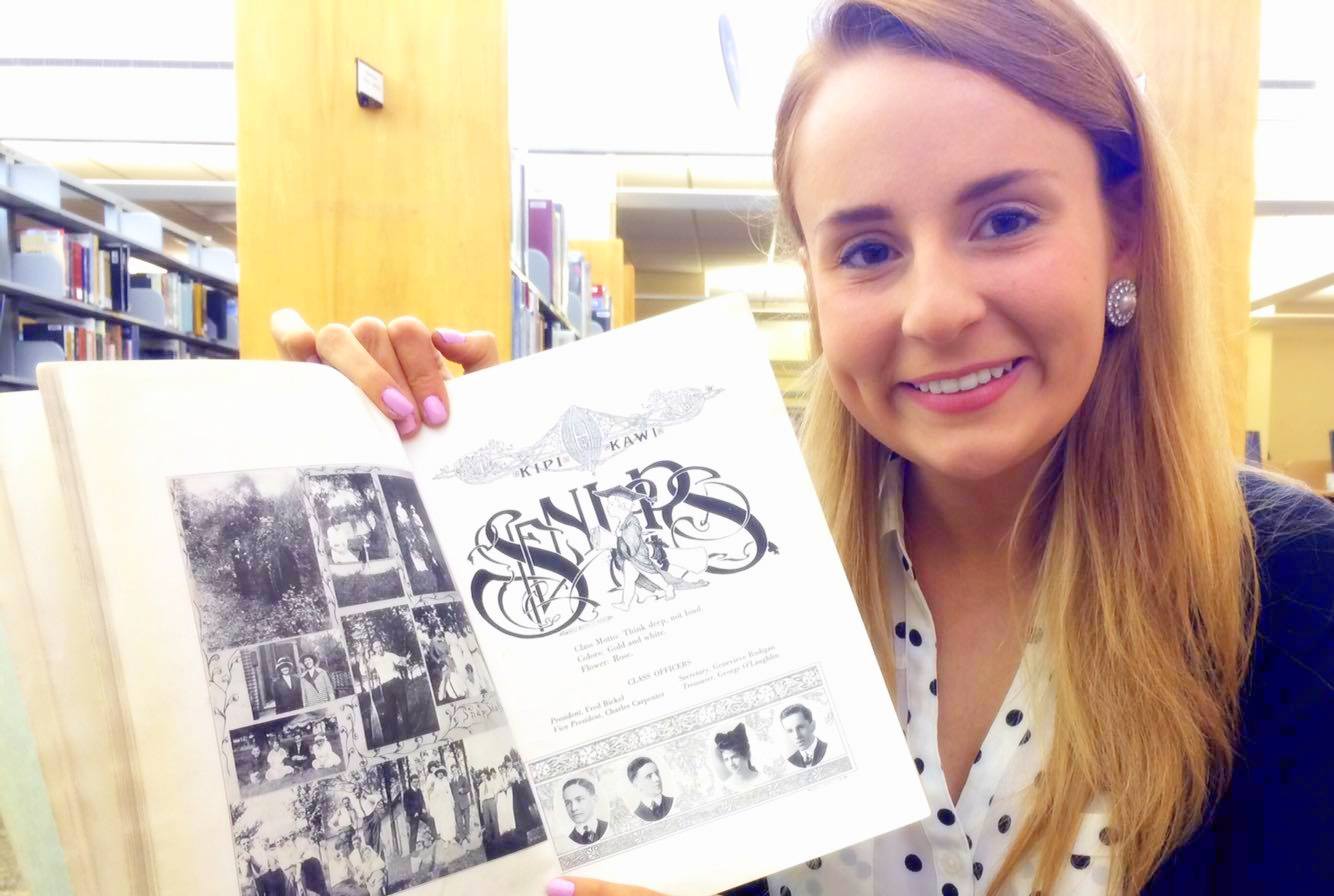 KIPI KAWI
SENIORS
Class Motto: Think deep, not loud.
Colors: Gold and white.
Flower: Rose.
CLASS OFFICERS
President, Fred Bickel
Vice President, Charles Carpenter
Secretary, Genevieve Rodigan
Treasurer, George O'Laughlin